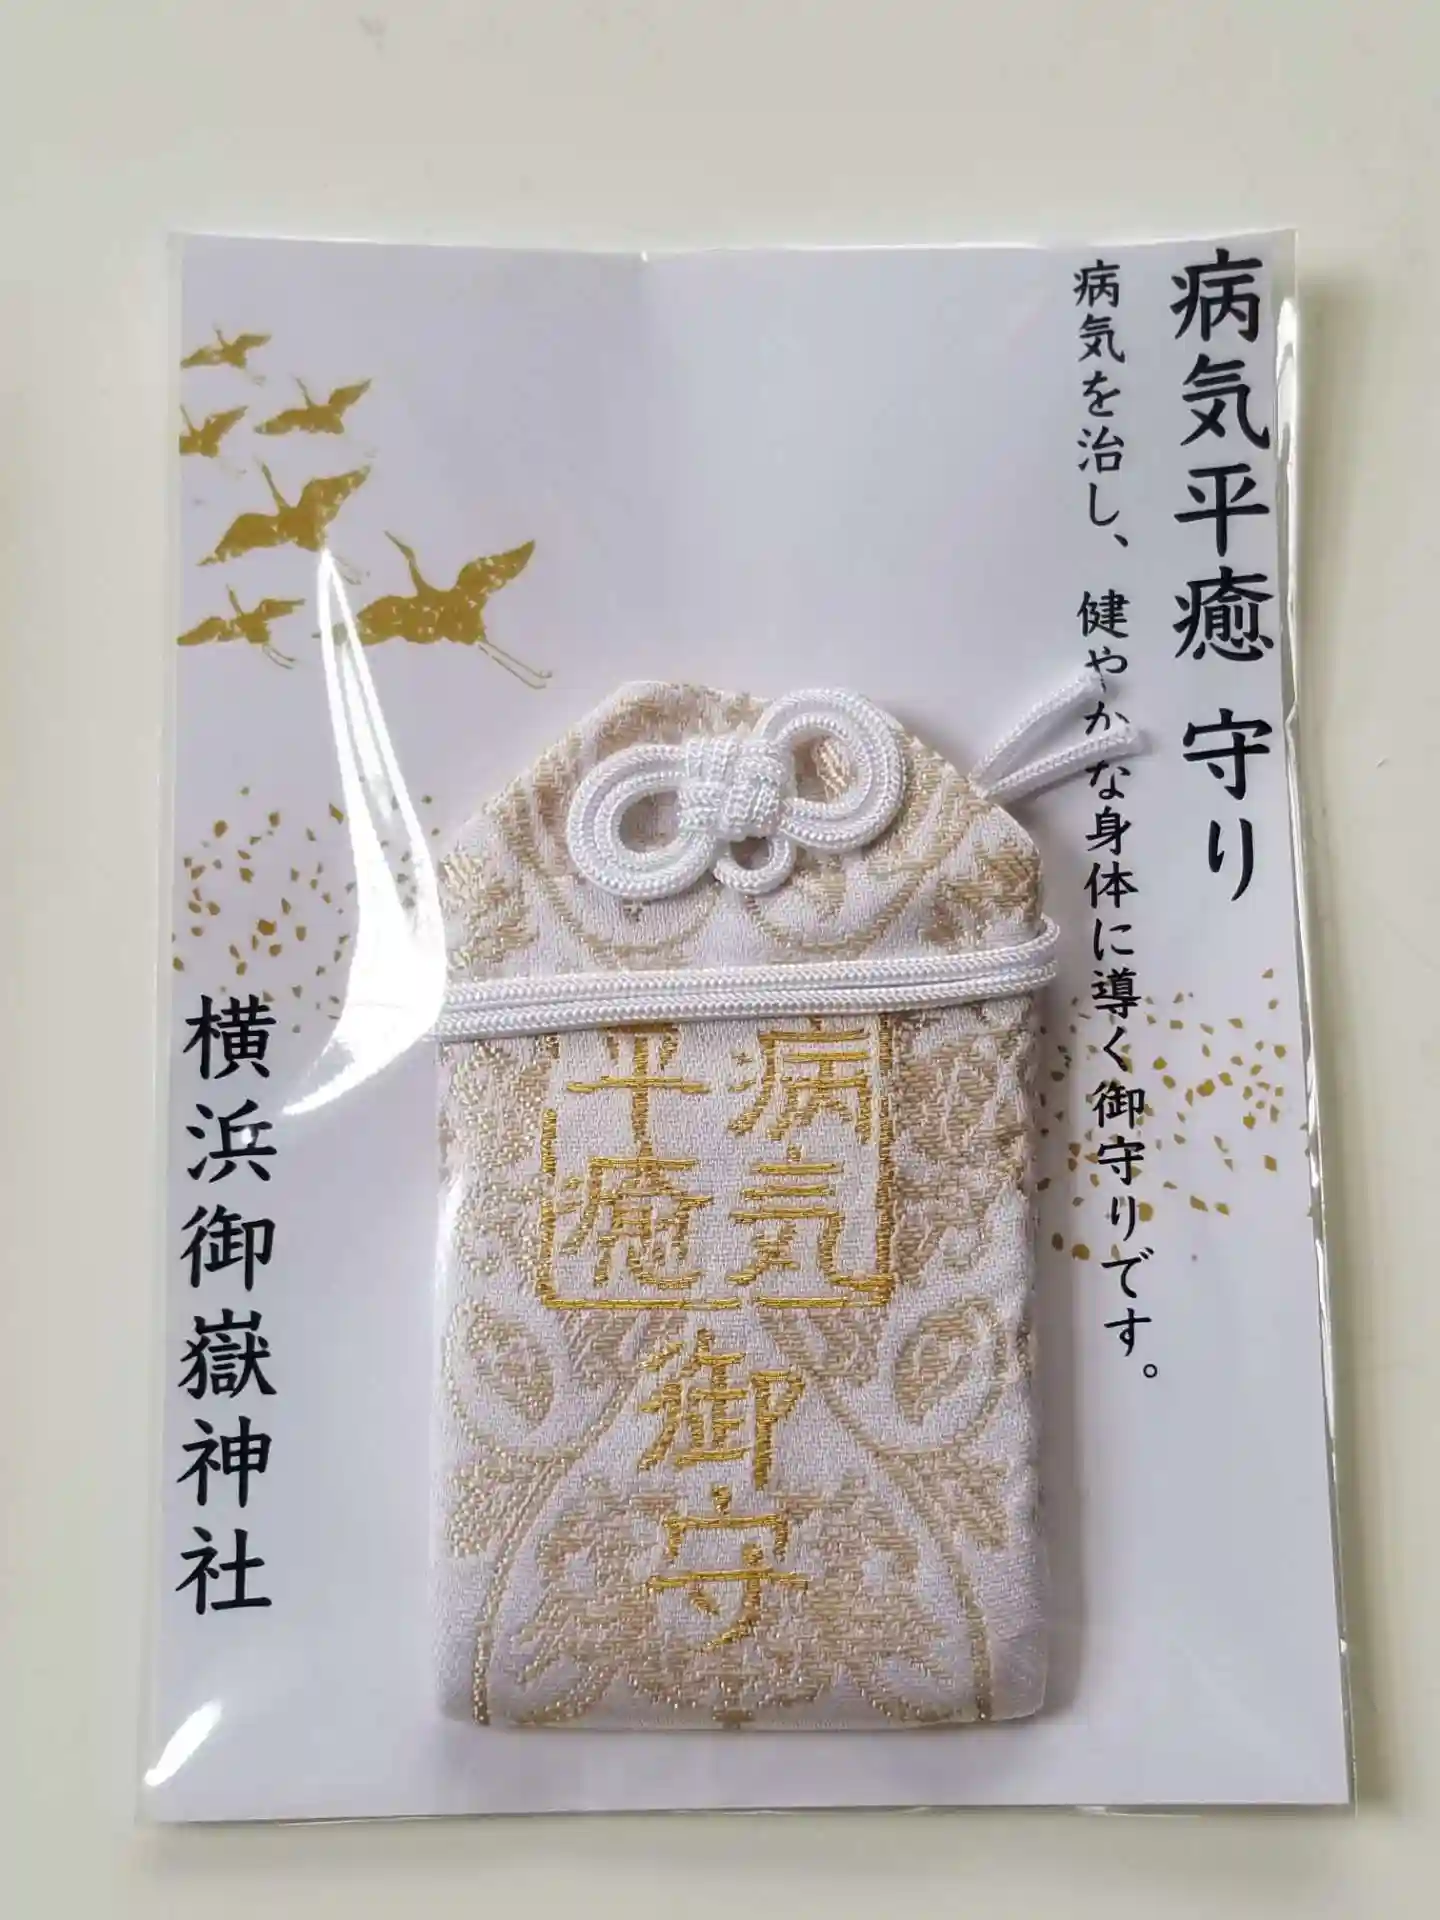 病気平癒 守り
病気を治し、健やかな身体に導く御守りです。
病気
平癒
御守
横浜御嶽神社